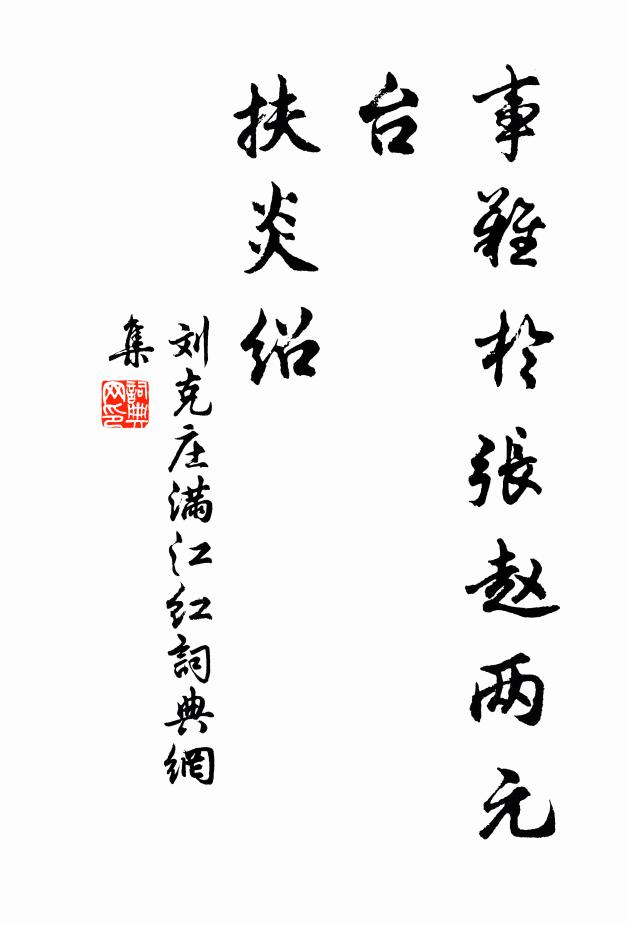 事難於張赵两元
台
扶炎绍
刘克庄满江红詞典網
集
詞典
网印